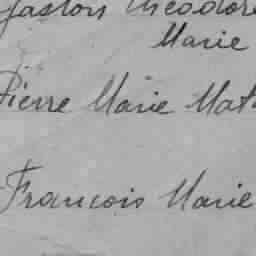 Gaston Théodore
Marie
Pierre Marie Mat
Francois Marie